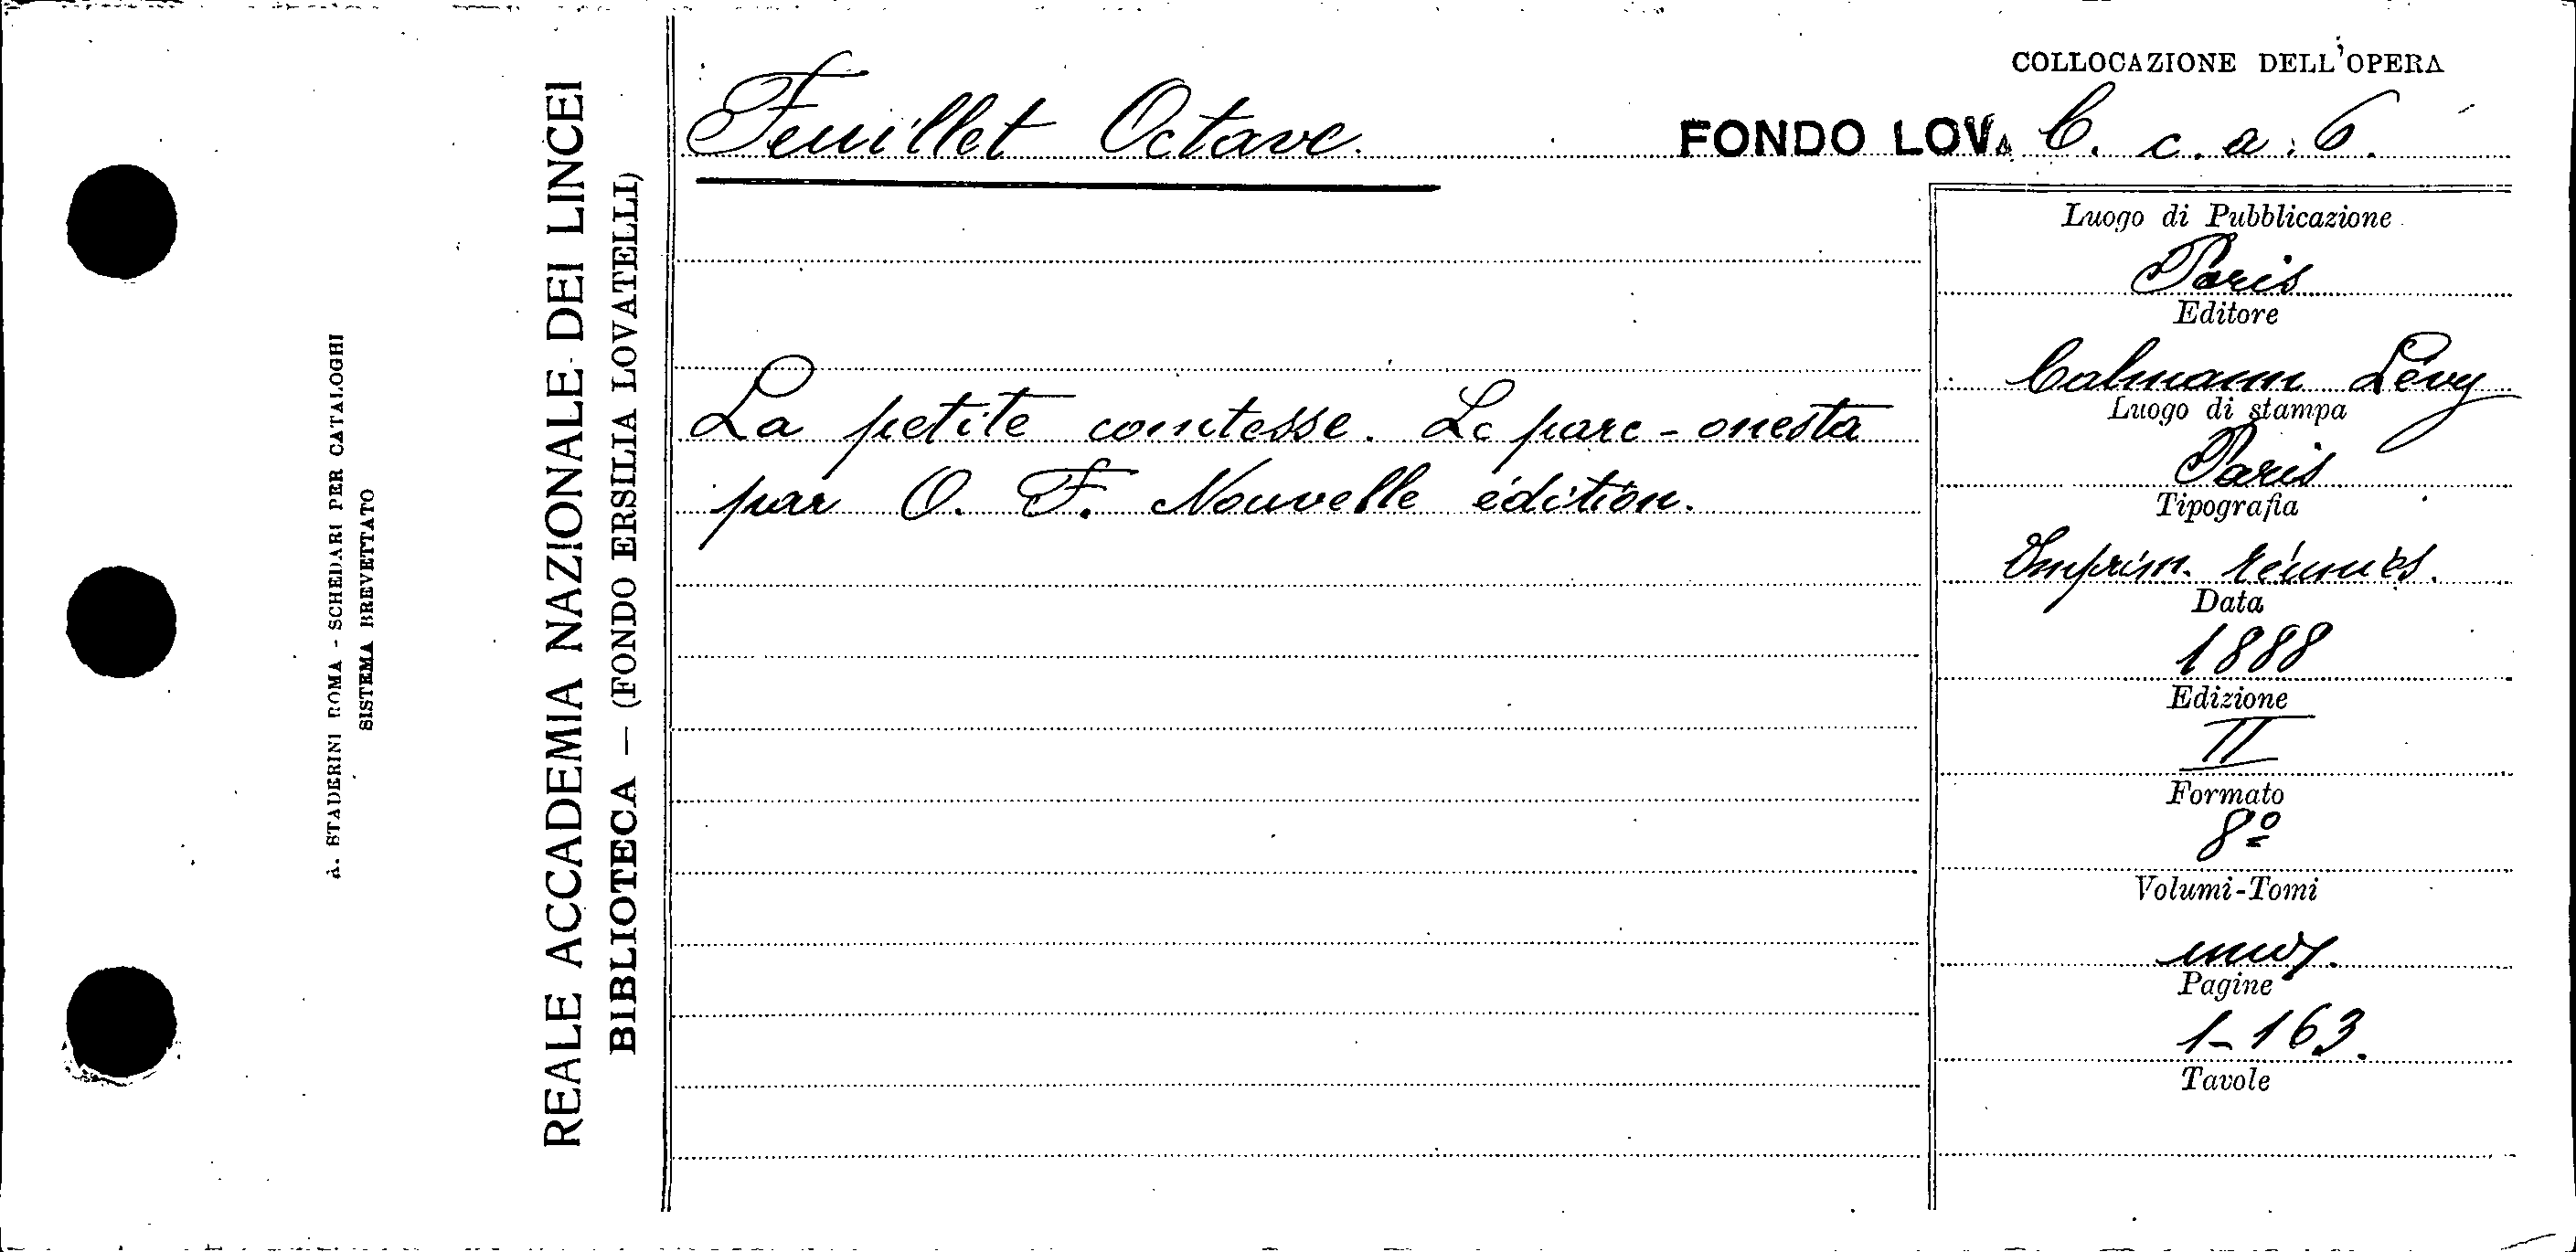 COLLOCAZIONE DELL'OPERA
Feuillet Octave.
FONDO LOV. C. c. a. 6.
La petite comtesse. Le parc - onesta
par O. F. Nouvelle édition.
Luogo di Pubblicazione
Paris
Editore
Calmann Lévy
Luogo di stampa
Paris
Tipografia
Imprim. réunies.
Data
1888
Edizione
II
Formato
8º
Volumi-Tomi
Pagine
1-163.
Tavole
REALE ACCADEMIA NAZIONALE DEI LINCEI
BIBLIOTECA — (FONDO ERSILIA LOVATELLI)
A. STADERINI ROMA - SCHEDARI PER CATALOGHI
SISTEMA BREVETTATO